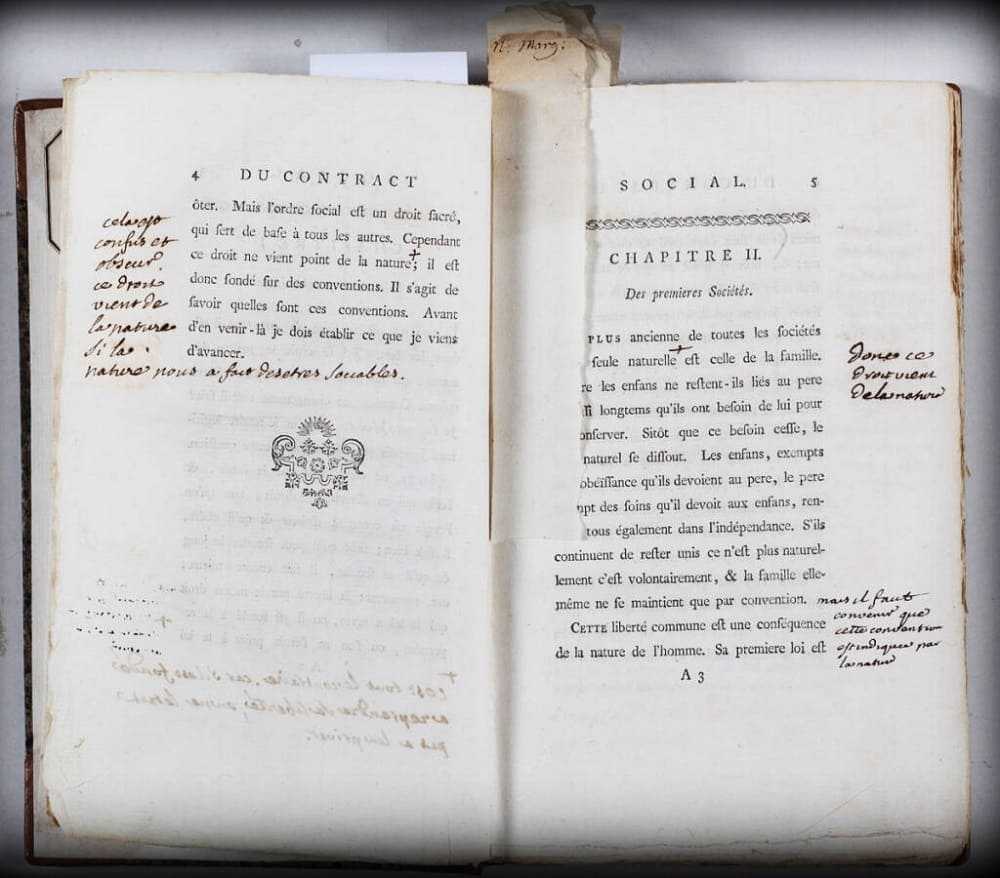 N. Marg:
4 DU CONTRACT
ôter. Mais l'ordre social est un droit sacré,
qui sert de base à tous les autres. Cependant
ce droit ne vient point de la nature; il est
donc fondé sur des conventions. Il s'agit de
savoir quelles sont ces conventions. Avant
d'en venir-là je dois établir ce que je viens
d'avancer.
cela est
confus et
obscur.
ce droit
vient de
la nature
si la
nature nous a fait des etres sociables.
SOCIAL. 5
CHAPITRE II.
Des premieres Sociétés.
PLUS ancienne de toutes les sociétés
seule naturelle est celle de la famille.
re les enfans ne restent-ils liés au pere
ssi longtems qu'ils ont besoin de lui pour
onserver. Sitôt que ce besoin cesse, le
naturel se dissout. Les enfans, exempts
obéissance qu'ils devoient au pere, le pere
mpt des soins qu'il devoit aux enfans, ren-
tous également dans l'indépendance. S'ils
continuent de rester unis ce n'est plus naturel-
lement c'est volontairement, & la famille elle-
même ne se maintient que par convention.
CETTE liberté commune est une conséquence
de la nature de l'homme. Sa premiere loi est
A 3
donc ce
droit vient
de la nature
mais il faut
convenir que
cette convention
est indiquee par
la nature